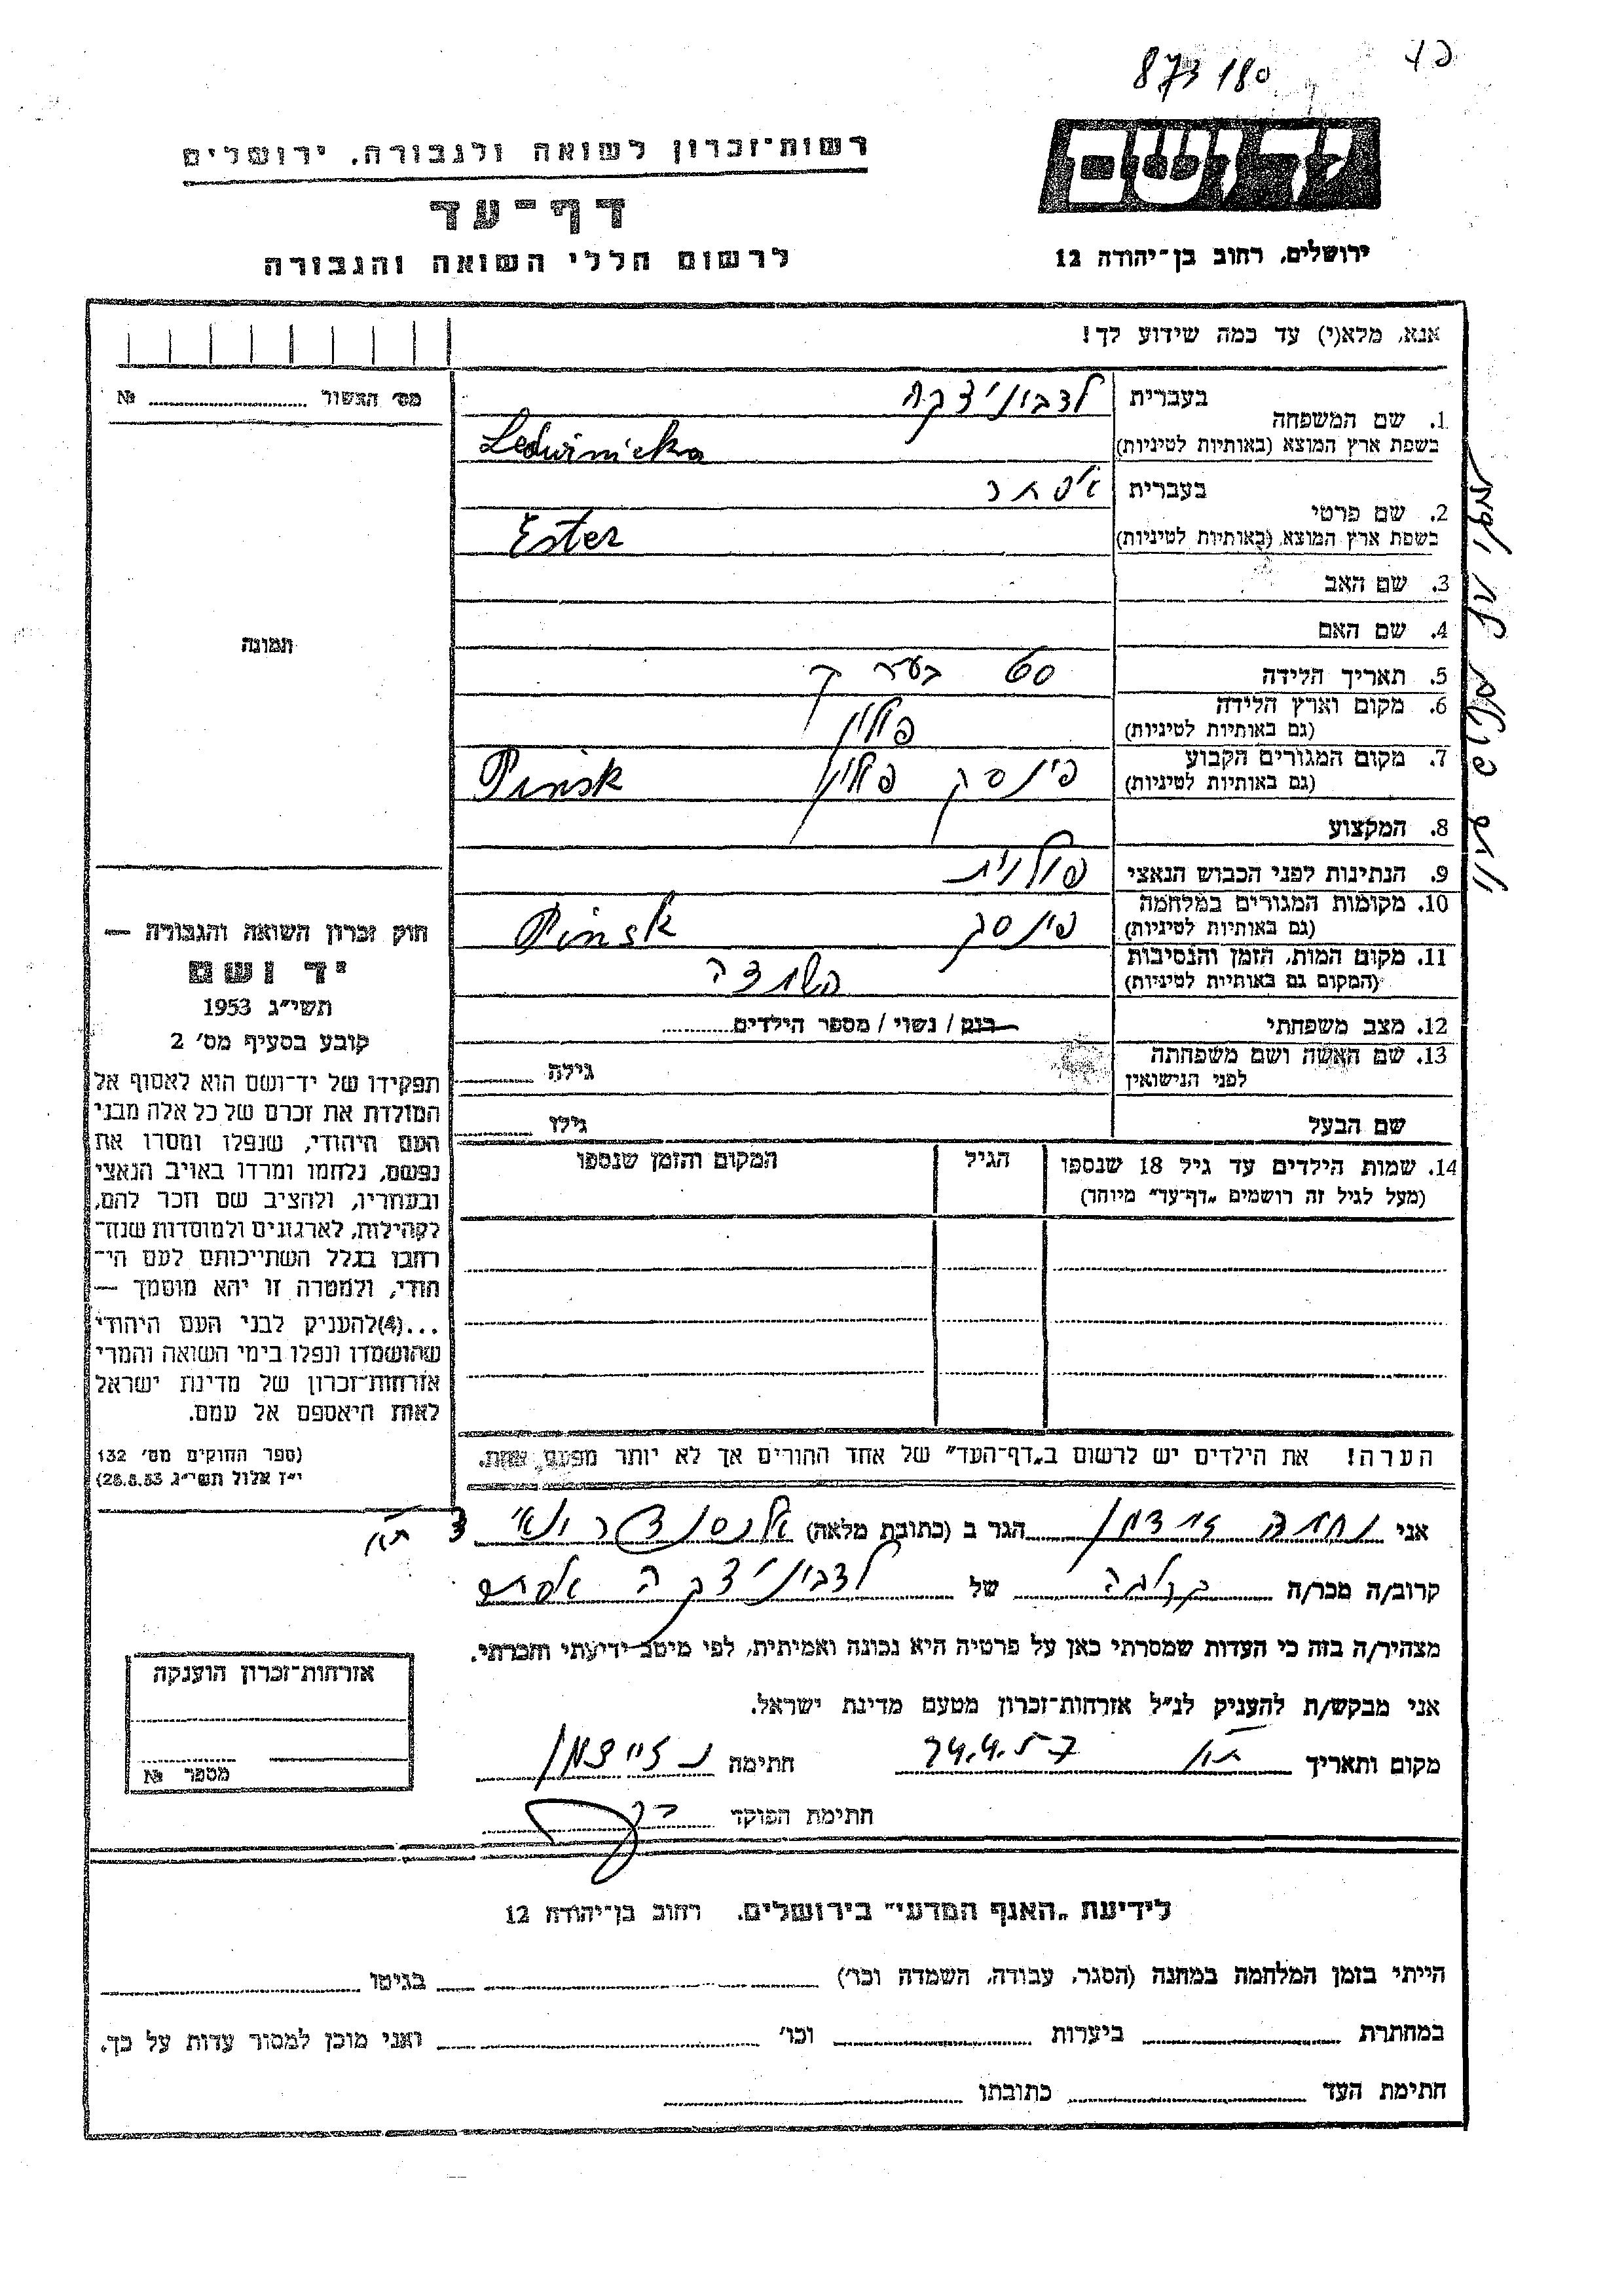 873 180
יד ושם
רשות־זכרון לשואה ולגבורה, ירושלים
דף־עד
לרשום חללי השואה והגבורה
ירושלים, רחוב בן־יהודה 12
אנא, מלא(י) עד כמה שידוע לך!
מס׳ התשור № 
1. שם המשפחה
בעברית לדבוניצקה
בשפת ארץ המוצא (באותיות לטיניות) Ledwinicka
2. שם פרטי
בעברית אסתר
בשפת ארץ המוצא (באותיות לטיניות) Ester
3. שם האב
4. שם האם
5. תאריך הלידה 60 בערך
6. מקום וארץ הלידה
(גם באותיות לטיניות) פולין
7. מקום המגורים הקבוע
(גם באותיות לטיניות) פינסק פולין Pinsk
8. המקצוע
9. הנתינות לפני הכבוש הנאצי פולנית
10. מקומות המגורים במלחמה
(גם באותיות לטיניות) פינסק Pinsk
11. מקום המות, הזמן והנסיבות
(המקום גם באותיות לטיניות) השמדה
12. מצב משפחתי רווק / נשוי / מספר הילדים
13. שם האשה ושם משפחתה
לפני הנישואין גילה
שם הבעל גילו
14. שמות הילדים עד גיל 18 שנספו
(מעל לגיל זה רושמים „דף־עד” מיוחד)
הגיל
המקום והזמן שנספו
תמונה
חוק זכרון השואה והגבורה —
יד ושם
תשי״ג 1953
קובע בסעיף מס׳ 2
תפקידו של יד־ושם הוא לאסוף אל
המולדת את זכרם של כל אלה מבני
העם היהודי, שנפלו ומסרו את
נפשם, נלחמו ומרדו באויב הנאצי
ובעוזריו, ולהציב שם וזכר להם,
לקהילות, לארגונים ולמוסדות שנח־
רבו בגלל השתייכותם לעם הי־
הודי, ולמטרה זו יהא מוסמך —
...(4) להעניק לבני העם היהודי
שהושמדו ונפלו בימי השואה והמרי
אזרחות־זכרון של מדינת ישראל
לאות היאספם אל עמם.
(ספר החוקים מס׳ 132
י״ז אלול תשי״ג 28.8.53)
הערה! את הילדים יש לרשום ב„דף־העד” של אחד ההורים אך לא יותר מפעם אחת.
אני נחמה זידמן הגר ב (כתובת מלאה) ת״א
קרוב/ה מכר/ה של לדבוניצקה אסתר
מצהיר/ה בזה כי העדות שמסרתי כאן על פרטיה היא נכונה ואמיתית, לפי מיטב ידיעתי והכרתי.
אני מבקש/ת להעניק לנ״ל אזרחות־זכרון מטעם מדינת ישראל.
מקום ותאריך ת״א 24.4.57 חתימה נ זידמן
חתימת הפוקד
אזרחות־זכרון הוענקה
מספר №
לידיעת „האגף המדעי” בירושלים, רחוב בן־יהודה 12
הייתי בזמן המלחמה במחנה (הסגר, עבודה, השמדה וכו׳) בגיטו
במחתרת ביערות וכו׳ ואני מוכן למסור עדות על כך.
חתימת העד כתובתו